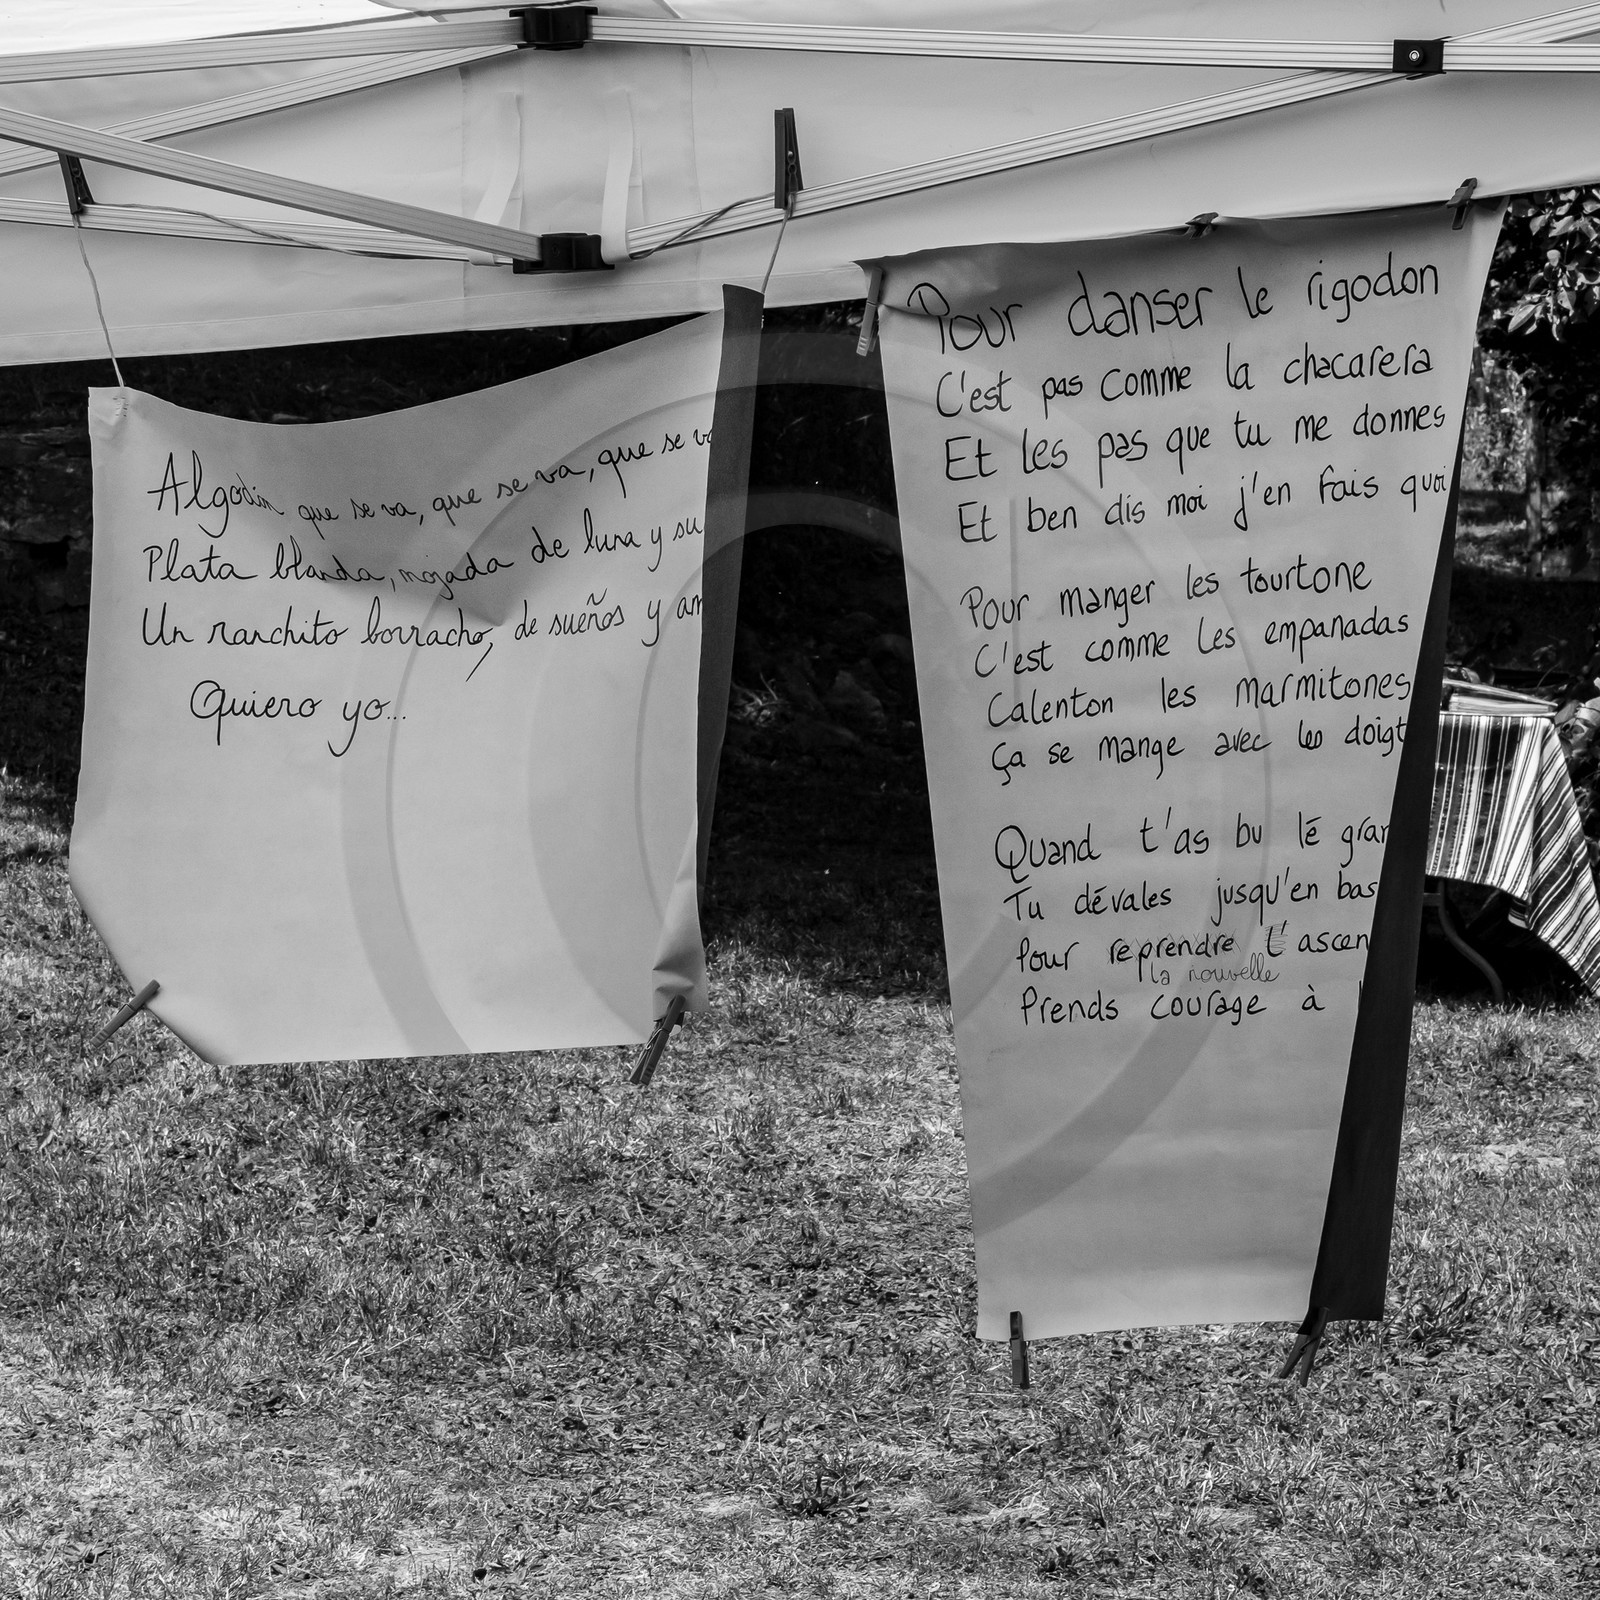 Algodón que se va, que se va, que se va
Plata blanda, mojada de luna y su
Un ranchito borracho, de sueños y am
Quiero yo...
Pour danser le rigodon
C'est pas comme la chacarera
Et les pas que tu me donnes
Et ben dis moi j'en fais quoi
Pour manger les tourtone
C'est comme les empanadas
Calenton les marmitones
Ça se mange avec les doigt
Quand t'as bu lé gran
Tu dévales jusqu'en bas
Pour reprendre t'ascen
la nouvelle
Prends courage à l